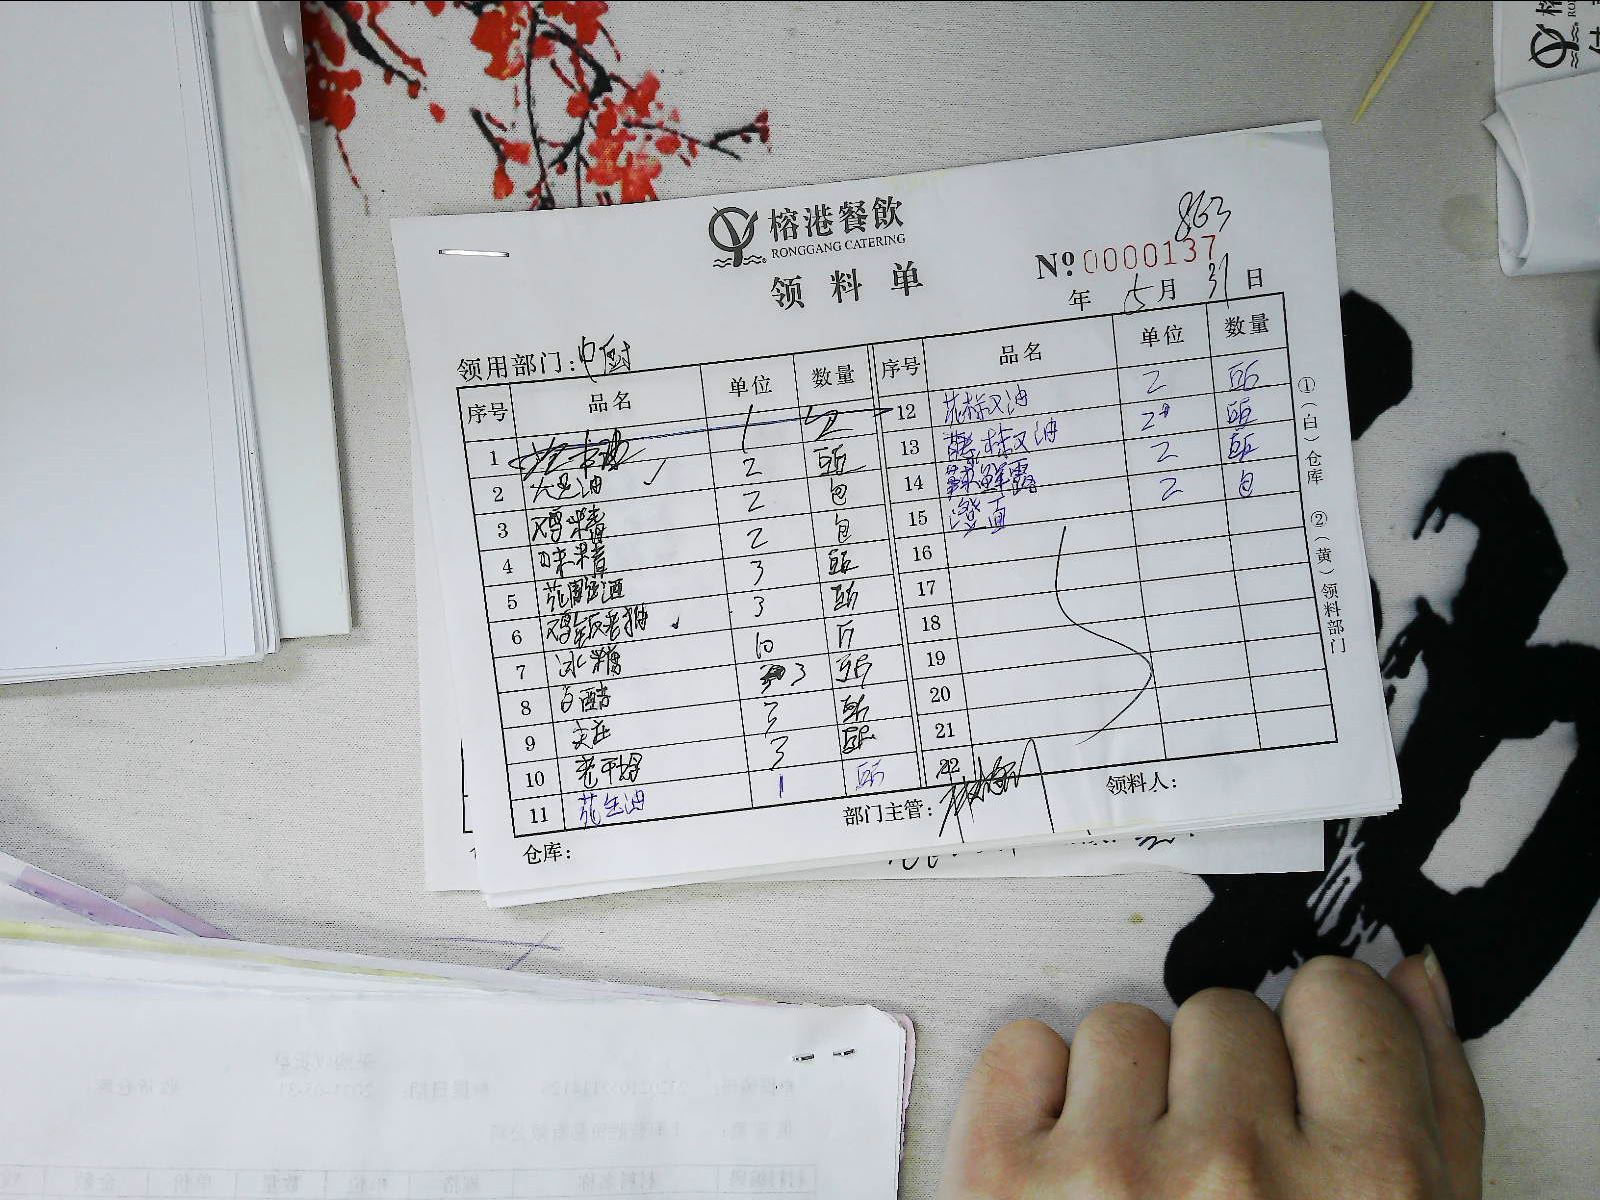 榕港餐飲
RONGGANG CATERING
领料单
863
Nº 0000137
年 5月 31日
领用部门:中厨
序号 品名 单位 数量 序号 品名 单位 数量
1 1 2 12 花椒油 2 瓶
2 大豆油 2 瓶 13 藤椒油 2 瓶
3 鸡精 2 包 14 辣鲜露 2 瓶
4 味精 2 包 15 澄面 2 包
5 花雕酒 3 瓶 16
6 老抽 3 瓶 17
7 冰糖 10 斤 18
8 白醋 3 瓶 19
9 3 瓶 20
10 3 瓶 21
11 花生油 1 瓶 22
仓库: 部门主管: 领料人:
①(白)仓库 ②(黄)领料部门